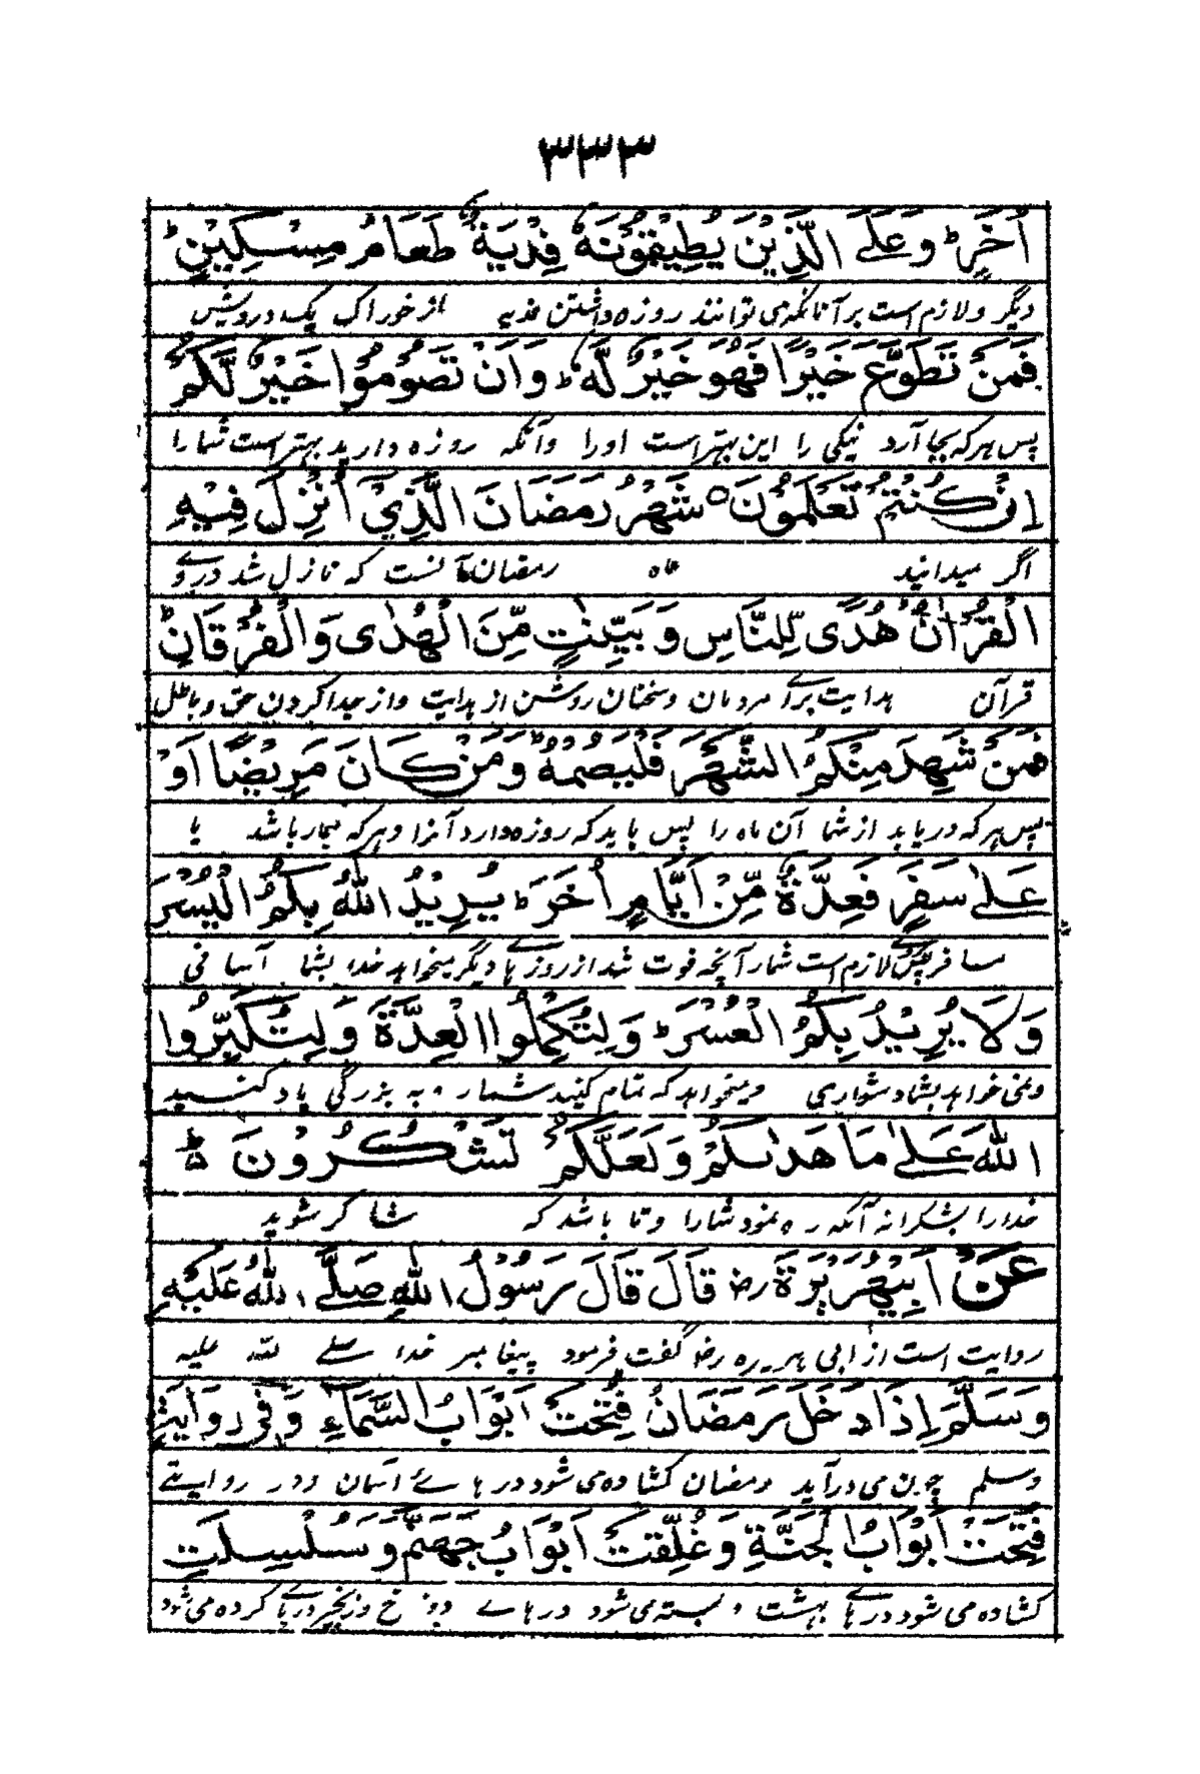 ۳۳۳
اُخَرَ ط وَعَلَى الَّذِيْنَ يُطِيْقُوْنَهٗ فِدْيَةٌ طَعَامُ مِسْكِيْنٍ ط
دیگر ولازم است برآنانکه می توانند روزه داشتن فدیه از خوراک یک درویش
فَمَنْ تَطَوَّعَ خَيْرًا فَهُوَ خَيْرٌ لَّهٗ ط وَاَنْ تَصُوْمُوْا خَيْرٌ لَّكُمْ
پس هرکه بجا آرد نیکی را این بهتر است اورا وآنکه روزه دارید بهتر است شمارا
اِنْ كُنْتُمْ تَعْلَمُوْنَ ○ شَهْرُ رَمَضَانَ الَّذِيْ اُنْزِلَ فِيْهِ
اگر میدانید ماه رمضان آنست که نازل شد دروے
الْقُرْاٰنُ هُدًى لِّلنَّاسِ وَبَيِّنٰتٍ مِّنَ الْهُدٰى وَالْفُرْقَانِ ط
قرآن هدایت برائے مردمان وسخنان روشن از هدایت واز جدا کردن حق و باطل
فَمَنْ شَهِدَ مِنْكُمُ الشَّهْرَ فَلْيَصُمْهُ ط وَمَنْ كَانَ مَرِيْضًا اَوْ
پس هرکه دریابد از شما آن ماه را پس باید که روزه دارد آنرا وهرکه بیمار باشد یا
عَلٰى سَفَرٍ فَعِدَّةٌ مِّنْ اَيَّامٍ اُخَرَ ط يُرِيْدُ اللّٰهُ بِكُمُ الْيُسْرَ
مسافر پس لازم است شمار آنچه فوت شد از روز هائے دیگر میخواهد خدا بشما آسانی
وَلَا يُرِيْدُ بِكُمُ الْعُسْرَ ط وَلِتُكْمِلُوا الْعِدَّةَ وَلِتُكَبِّرُوا
ونمی خواهد بشما دشواری ومیخواهد که تمام کنید شمار و به بزرگی یاد کنید
اللّٰهَ عَلٰى مَا هَدٰىكُمْ وَلَعَلَّكُمْ تَشْكُرُوْنَ ط
خدارا بشکرانه آنکه ره نمود شمارا وتا باشد که شاکر شوید
عَنْ اَبِيْ هُرَيْرَةَ رض قَالَ قَالَ رَسُوْلُ اللّٰهِ صَلَّى اللّٰهُ عَلَيْهِ
روایت است از ابی هریره رض گفت فرمود پیغامبر خدا صلے الله علیه
وَسَلَّمَ اِذَا دَخَلَ رَمَضَانُ فُتِحَتْ اَبْوَابُ السَّمَاءِ وَفِيْ رِوَايَةٍ
وسلم چون می درآید رمضان کشاده می شود در هائے آسمان ودر روایتے
فُتِحَتْ اَبْوَابُ الْجَنَّةِ وَغُلِّقَتْ اَبْوَابُ جَهَنَّمَ وَسُلْسِلَتِ
کشاده می شود در هائے بهشت و بسته می شود درهاے دوزخ وزنجیر درپائے کرده می شود